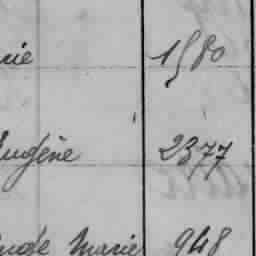 rie 1580
Eugène 2377
ude Marie 948